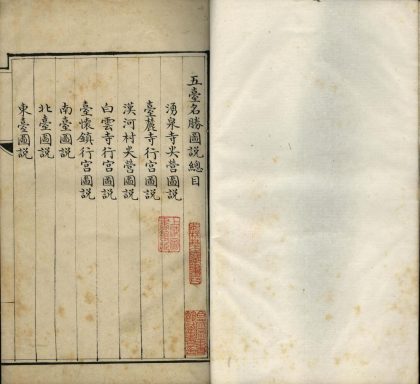 五臺名勝圖說總目
湧泉寺尖營圖說
臺麓寺行宮圖說
漠河村尖營圖說
白雲寺行宮圖說
臺懷鎮行宮圖說
南臺圖說
北臺圖說
東臺圖說